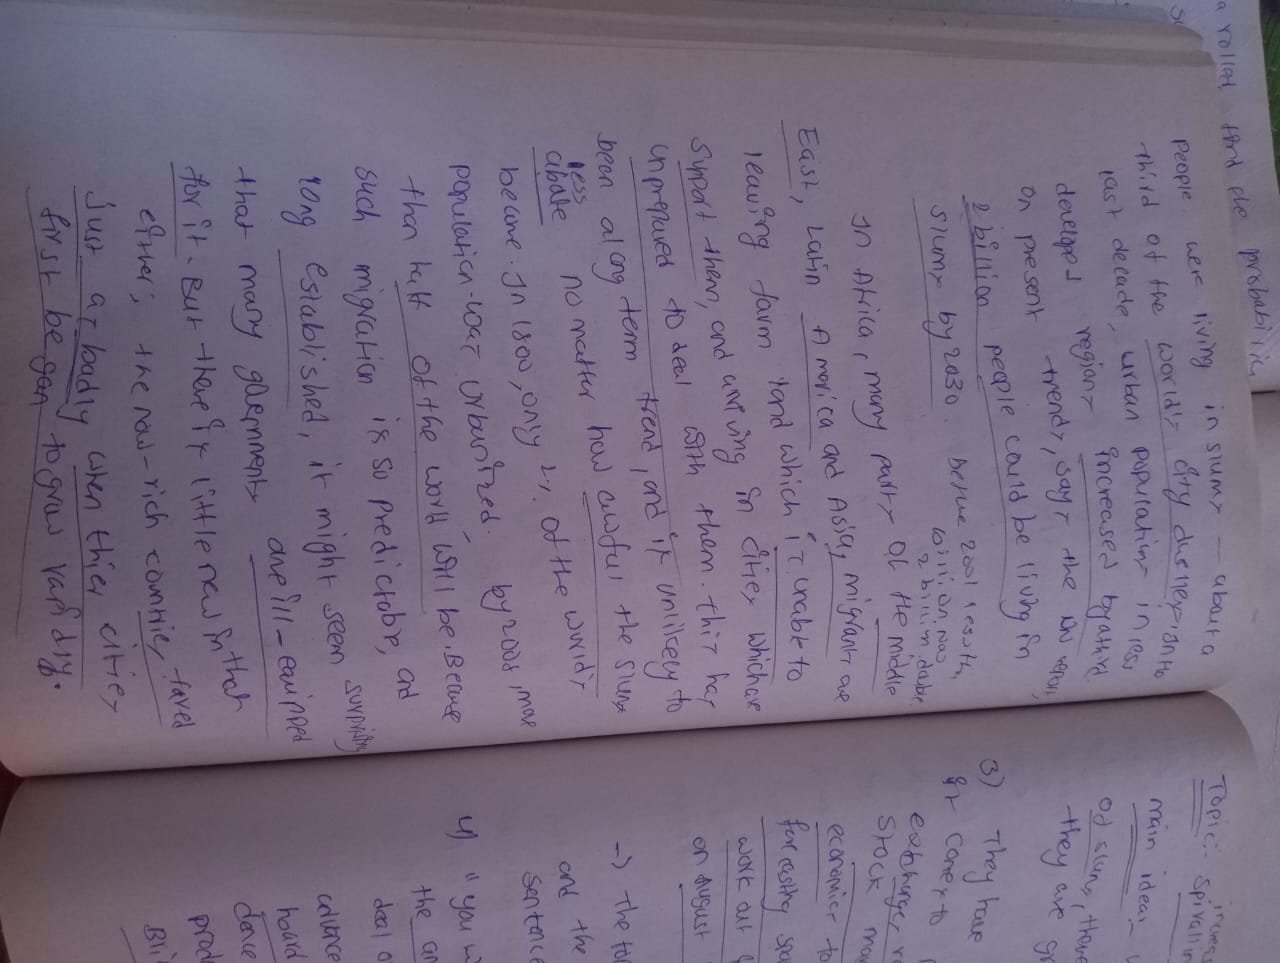 a rolled, find the probability
people were living in slums — about a
third of the world's city dwellers
last decade, urban populations in less
developed regions increased by a third.
on present trends, says the UN report,
2 billion people could be living in
slums by 2030.
less than
billion, now
2 billion, double
In Africa, many parts of the middle
East, Latin America and Asia, migrants are
leaving farm land which is unable to
support them, and arriving in cities which are
unprepared to deal with them. this has
been a long term trend, and is unlikely to
less
abate no matter how awful the slums
become. In 1800, only 2% of the world's
population was urbanized. by 2008, more
than half of the world will be. Because
such migration is so predictable, and
long established, it might seem surprising
that many governments are ill-equipped
for it. But there is little new in that
either; the now-rich countries fared
just as badly when thier cities
first began to grow rapidly.
Topic:- spirallin
increas
main idea:-
of slums, there
they are gr
3) They have
it comes to
exchanges
stock
economics to
forecasting
work out
on August
→ The
and the
sentence
4) " you w
the an
deal o
advance
hound
dence
prod